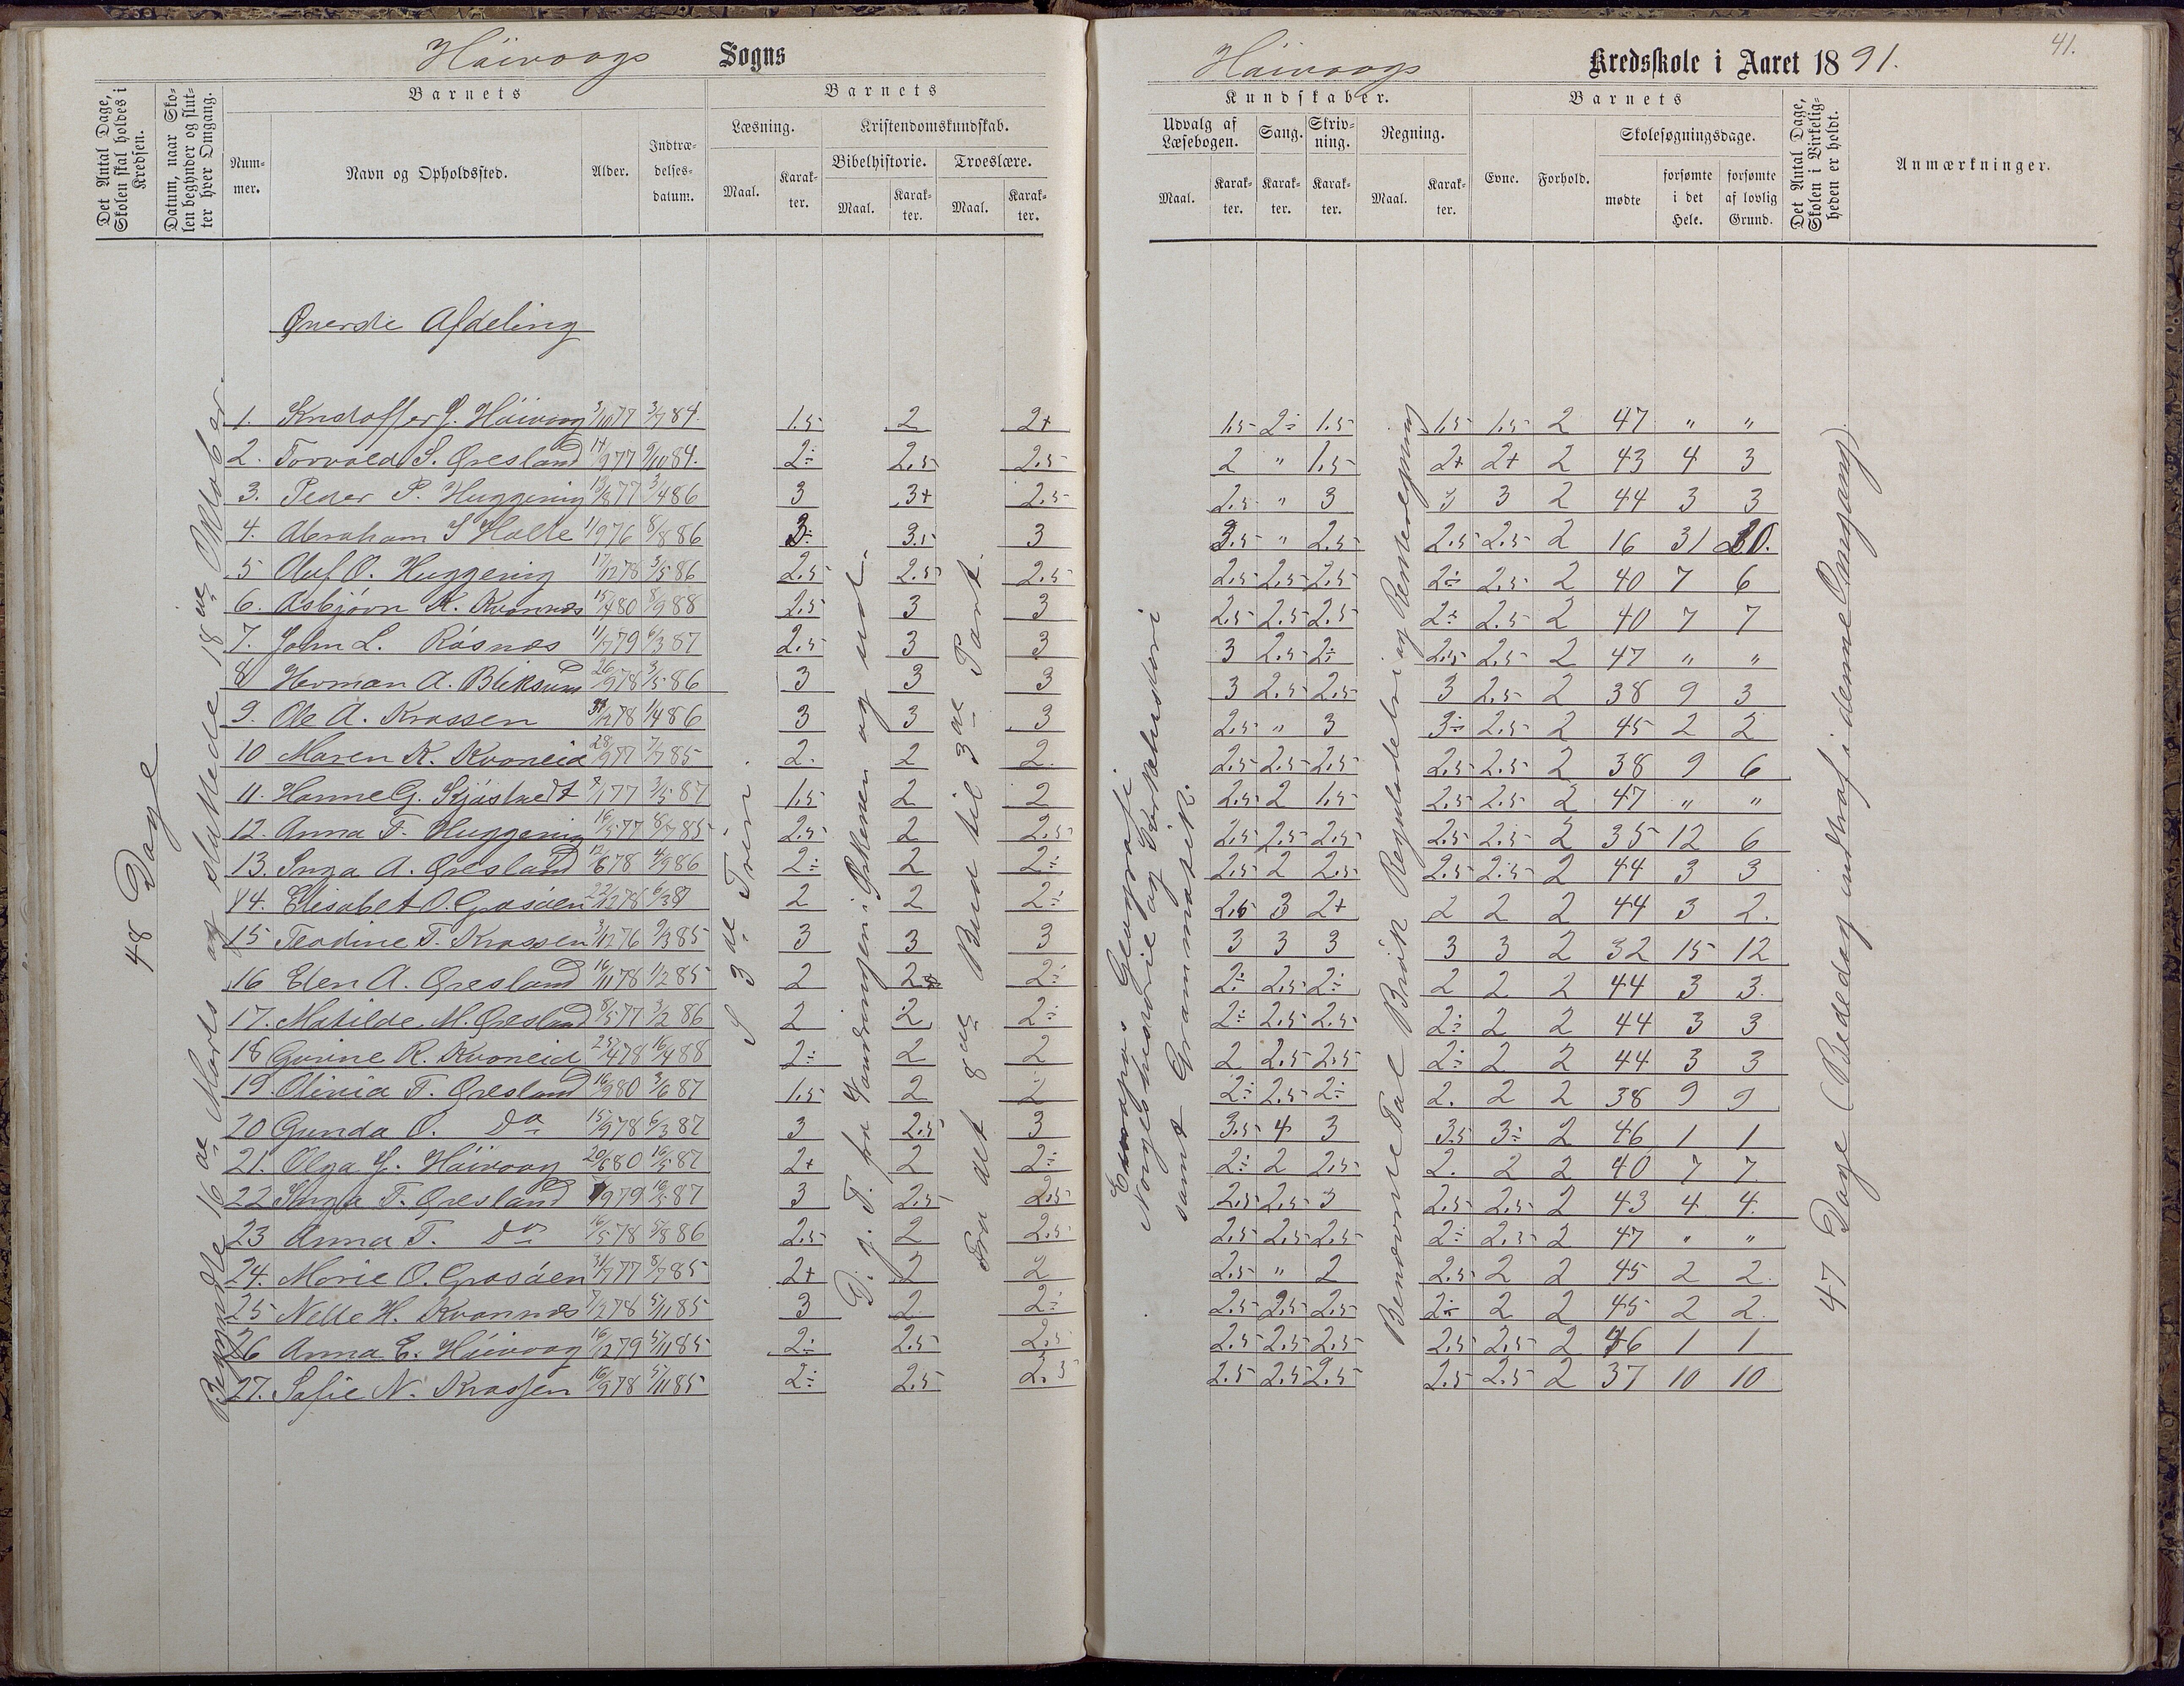 Höivaags Sogns
Det Antal Dage, Skolen skal holdes i Kredsen.
Datum, naar Skolen begynder og slutter hver Omgang.
Barnets
Nummer.
Navn og Opholdssted.
Alder.
Indtrædelsesdatum.
Barnets
Læsning.
Kristendomskundskab.
Bibelhistorie.
Troeslære.
Maal.
Karakter.
Maal.
Karakter.
Maal.
Karakter.
Øverste Afdeling
48 Dage
Begyndte 16de Marts og sluttede 18de Oktober.
I 3de Trin.
D. g. T. fra Vandringen i Ørkenen og ud.
Fra det 8de Bud til 3die Part.
1. Kristoffer J. Höivaag 3/10 77 3/7 84. 1.5 2 2+
2. Torvald S. Øresland 14/9 77 9/10 84. 2÷ 2.5 2.5
3. Peder P. Huggenig 13/8 77 3/4 86 3 3+ 2.5
4. Abraham S Holte 1/9 76 8/8 86 3÷ 3.5 3
5 Auf O. Huggenig 17/12 78 3/5 86 2.5 2.5 2.5
6. Asbjørn K. Kvannes 15/4 80 8/9 88 2.5 3 3
7. John L. Rösnes 11/7 79 6/3 87 2.5 3 3
8 Herman A. Bliksund 26/9 78 3/5 86 3 3 3
9. Ole A. Krossen 31/12 78 1/4 86 3 3 3
10 Maren K. Kvaneid 28/9 77 7/7 85 2. 2 2.
11. Hanne G. Kjöstvedt 8/1 77 3/5 87 1.5 2 2
12. Anna F. Huggenig 16/5 77 8/7 85 2.5 2 2.5
13. Inga A. Øresland 12/6 78 4/9 86 2÷ 2 2÷
14. Elisabet O. Grosöen 22/12 78 6/3 87 2 2 2÷
15 Teodine T. Krossen 3/12 76 9/3 85 3 3 3
16 Elen A. Øresland 16/11 78 1/2 85 2 2 2÷
17. Matilde M. Øresland 8/5 77 3/2 86 2 2 2÷
18 Gurine R. Kvaneid 25/4 78 16/4 88 2÷ 2 2
19 Olivia T. Øresland 16/9 80 3/6 87 1.5 2 2
20 Gunda O. Do 15/9 78 6/3 87 3 2.5 3
21. Olga J. Höivaag 20/6 80 16/5 87 2+ 2 2÷
22 Inga T. Øresland 1/9 79 16/5 87 3 2.5 2.5
23 Anna T. Do 16/5 78 5/8 86 2.5 2 2.5
24. Marie O. Grosöen 31/7 77 8/7 85 2+ 2 2
25 Nelle H. Kvannes 7/3 78 5/11 85 3 2 2÷
26 Anna E. Höivaag 16/12 79 5/11 85 2÷ 2.5 2.5
27. Sofie N. Krossen 16/9 78 5/11 85 2÷ 2.5 2.5
41.
Höivaags Kredsskole i Aaret 1891.
Kundskaber.
Udvalg af Læsebogen.
Sang.
Skrivning.
Regning.
Barnets
Evne.
Forhold.
Skolesøgningsdage.
mødte
forsømte i det Hele.
forsømte af lovlig Grund.
Det Antal Dage, Skolen i Virkeligheden er holdt.
Anmærkninger.
Maal.
Karakter.
Karakter.
Karakter.
Maal.
Karakter.
Europas Geografi
Norgeshistorie og Kirkehistori
samt Grammatik.
Benævnte Tal Brök Reguladetri og Renteregning
47 Dage (Bededag indtraf i denne Omgang).
1.5 2÷ 1.5 1.5 1.5 2 47 " "
2 " 1.5 2+ 2+ 2 43 4 3
2.5 " 3 3 3 2 44 3 3
3.5 " 2.5 2.5 2.5 2 16 31 30.
2.5 2.5 2.5 2÷ 2.5 2 40 7 6
2.5 2.5 2.5 2÷ 2.5 2 40 7 7
3 2.5 2÷ 2.5 2.5 2 47 " "
3 2.5 2.5 3 2.5 2 38 9 3
2.5 " 3 3÷ 2.5 2 45 2 2
2.5 2.5 2.5 2.5 2.5 2 38 9 6
2.5 2 1.5 2.5 2.5 2 47 " "
2.5 2.5 2.5 2.5 2.5 2 35 12 6
2.5 2 2.5 2.5 2.5 2 44 3 3
2.5 3 2+ 2 2 2 44 3 2.
3 3 3 3 3 2 32 15 12
2÷ 2.5 2÷ 2 2 2 44 3 3.
2÷ 2.5 2.5 2÷ 2 2 44 3 3
2 2.5 2.5 2÷ 2 2 44 3 3
2÷ 2.5 2÷ 2. 2 2 38 9 9
3.5 4 3 3.5 3÷ 2 46 1 1
2÷ 2 2.5 2. 2 2 40 7 7.
2.5 2.5 3 2.5 2.5 2 43 4 4.
2.5 2.5 2.5 2÷ 2.5 2 47 " "
2.5 " 2 2.5 2 2 45 2 2.
2.5 2.5 2.5 2÷ 2 2 45 2 2.
2.5 2.5 2.5 2.5 2.5 2 46 1 1
2.5 2.5 2.5 2.5 2.5 2 37 10 10